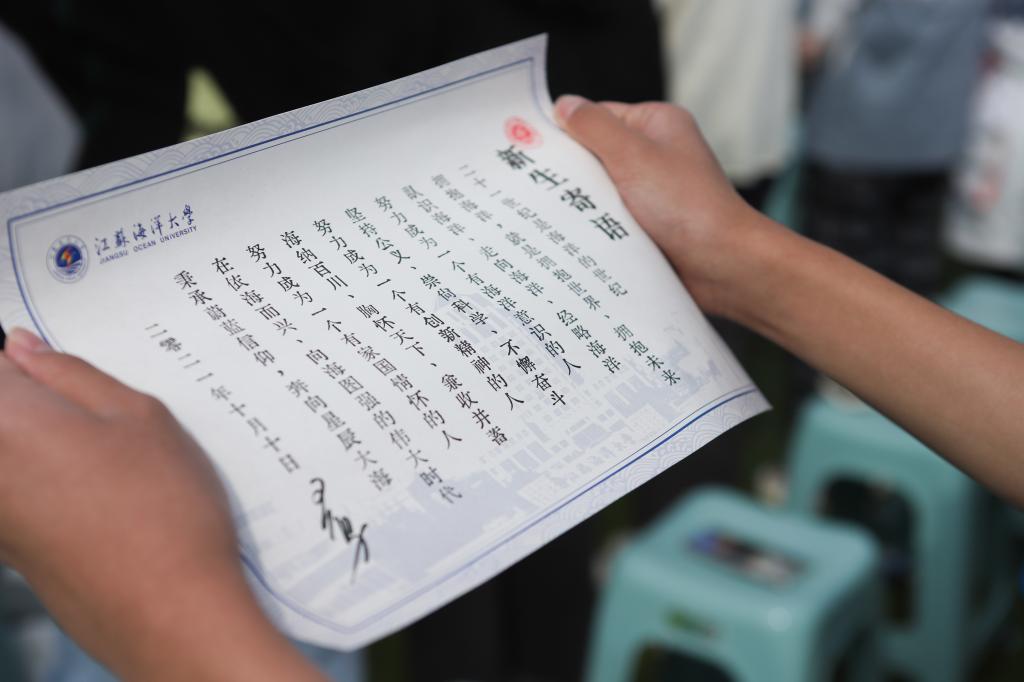 新生寄语
二十一世纪是海洋的世纪
拥抱海洋、就是拥抱世界、拥抱未来
认识海洋、走向海洋、经略海洋
努力成为一个有海洋意识的人
坚持公义、崇尚科学、不懈奋斗
努力成为一个有创新精神的人
海纳百川、胸怀天下、兼收并蓄
努力成为一个有家国情怀的人
在依海而兴、向海图强的伟大时代
秉承蔚蓝信仰，奔向星辰大海
二零二一年十月十日
江蘇海洋大學
JIANGSU OCEAN UNIVERSITY